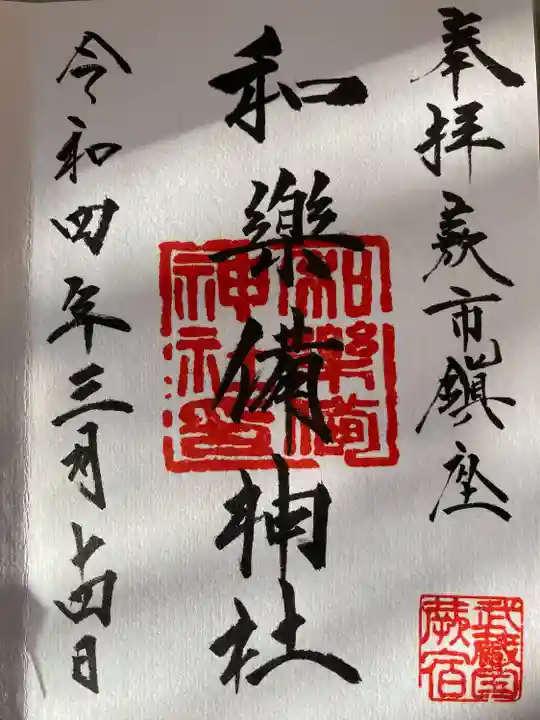 奉拝蕨市鎮座
和樂備神社
令和四年三月十四日
和樂備神社印
武蔵国蕨宿